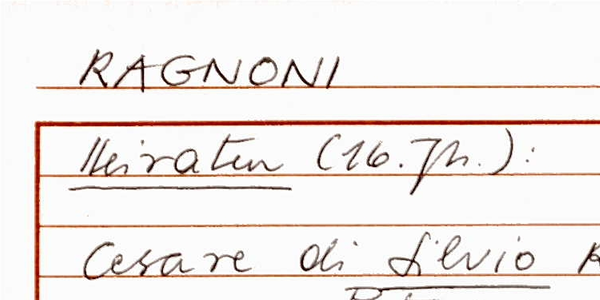 RAGNONI
Heiraten (16. Jh.):
Cesare di Silvio